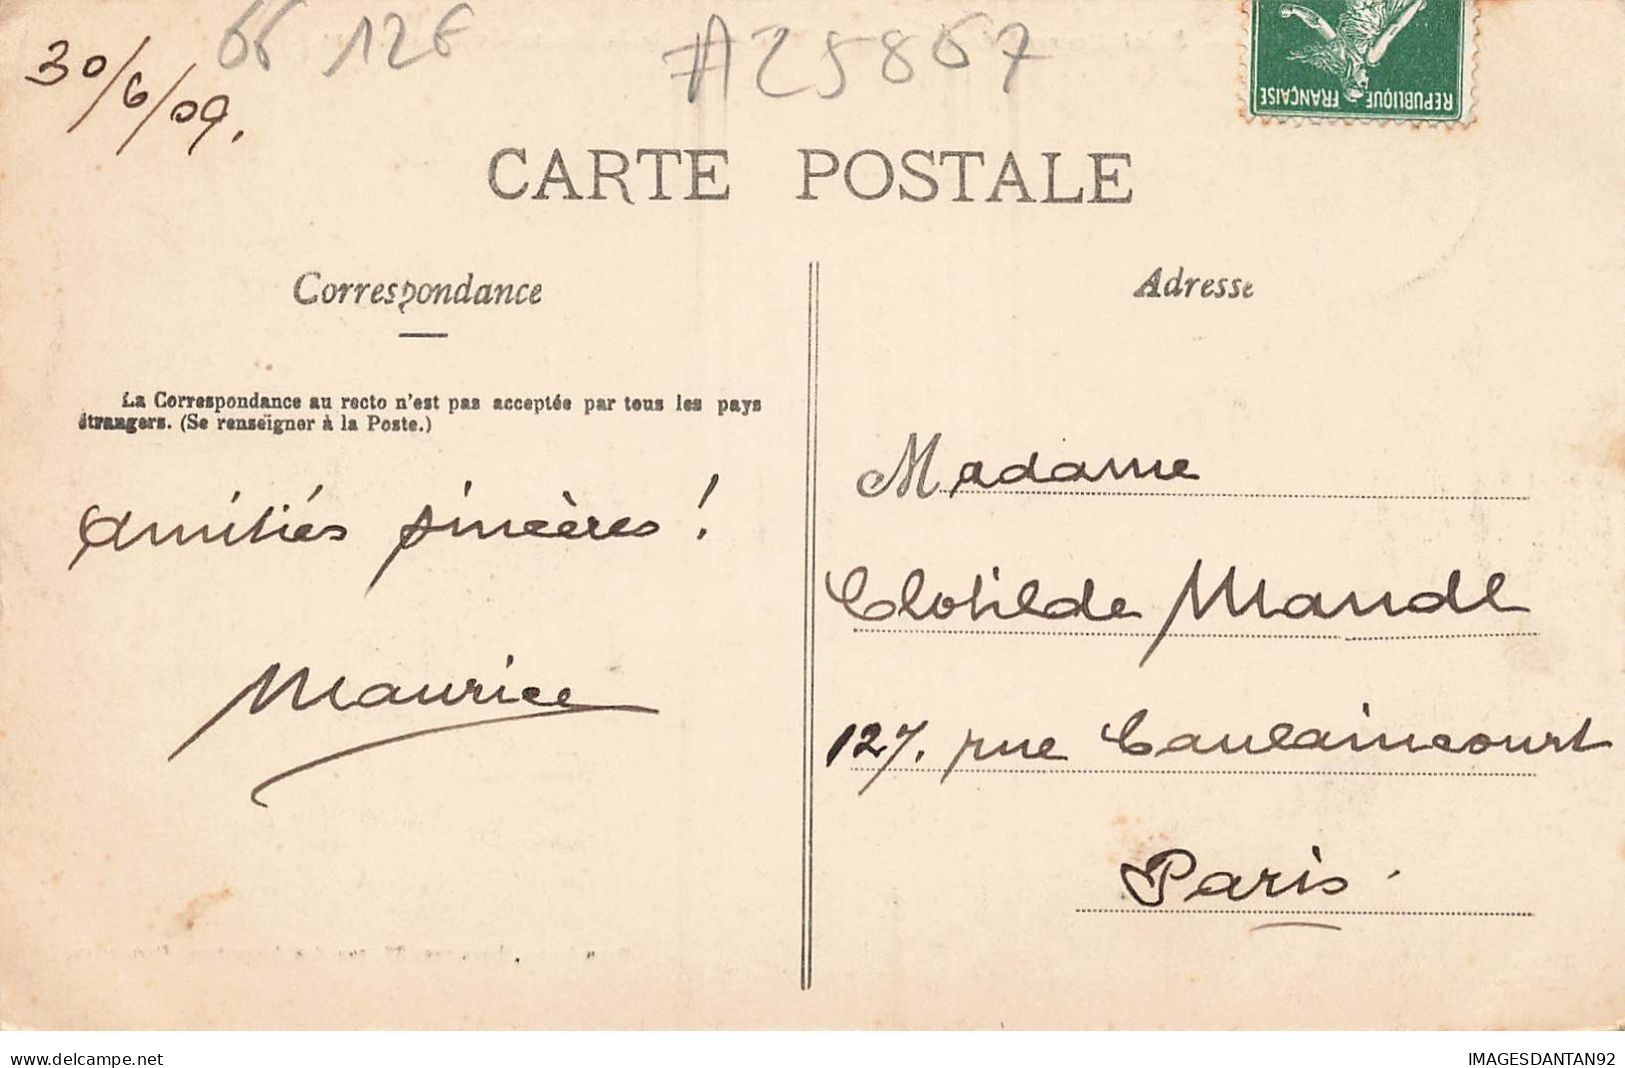 30/6/09.
66 126
A25867
REPUBLIQUE FRANÇAISE
CARTE POSTALE
Correspondance
Adresse
La Correspondance au recto n'est pas acceptée par tous les pays
étrangers. (Se renseigner à la Poste.)
Amitiés sincères !
Maurice
Madame
Clotilde Mandl
127. rue Caulaincourt
Paris.
www.delcampe.net
IMAGESDANTAN92